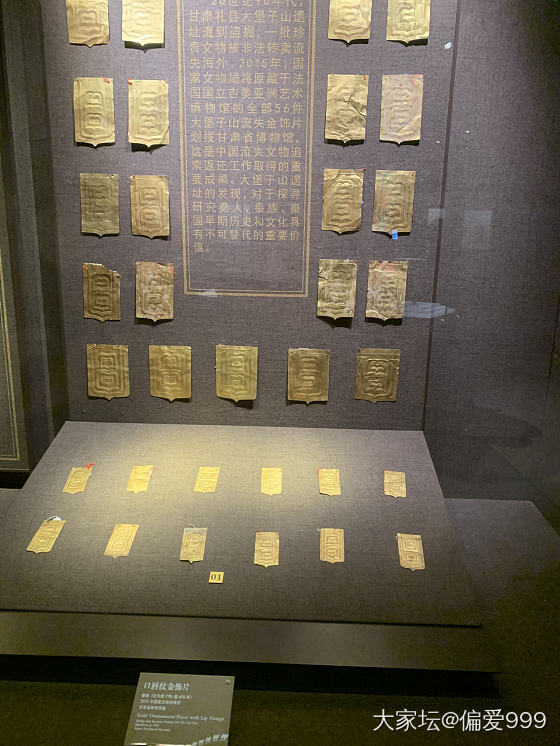 20世纪90年代，
甘肃礼县大堡子山遗
址遭到盗掘，一批珍
贵文物被非法转卖流
失海外。2015年，国
家文物局将原藏于法
国国立吉美亚洲艺术
博物馆的全部56件
大堡子山流失金饰片
划拨甘肃省博物馆，
这是中国流失文物追
索返还工作取得的重
要成果。大堡子山遗
址的发现，对于探寻
研究秦人、秦族、秦
国早期历史和文化具
有不可替代的重要价
值。
01
口唇纹金饰片
Gold Ornamental Piece with Lip Design
大家坛@偏爱999